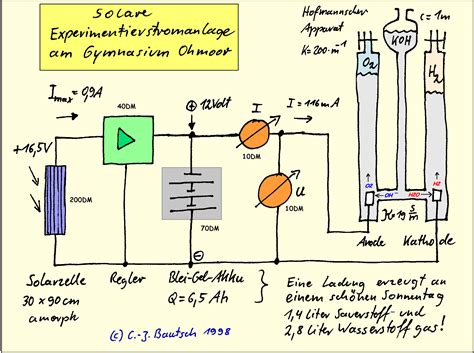 Solare
Experimentierstromanlage
am Gymnasium Ohmoor
Hofmannscher
Apparat
K=200·m⁻¹
c=1m
KOH
O₂
H₂
Imax = 0,9A
40DM
⊕ 12Volt
I
I = 116mA
+16,5V
200DM
10DM
U
10DM
70DM
O2
OH⁻
H2O
H2
Anode
Kathode
⊖
Solarzelle
30 x 90 cm
amorph
Regler
Blei-Gel-Akku
Q = 6,5 Ah
Eine Ladung erzeugt an
einem schönen Sonntag
1,4 Liter Sauerstoff- und
2,8 Liter Wasserstoffgas!
(c) C.-J. Bautsch 1998